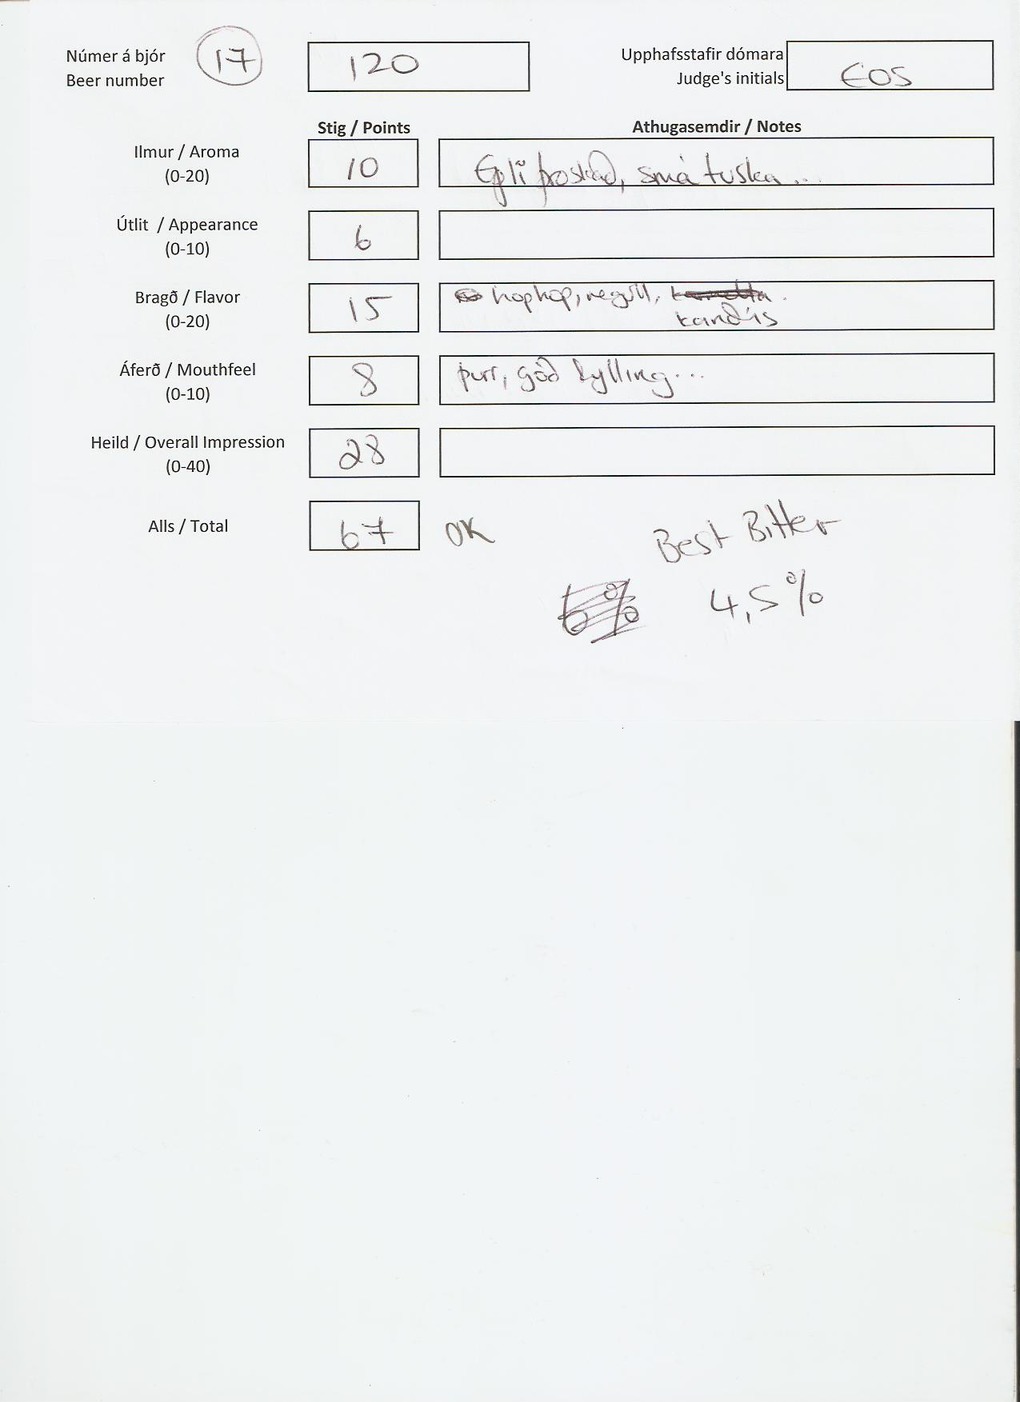 Númer á bjór
Beer number
17
120
Upphafsstafir dómara
Judge's initials
EOS
Stig / Points
Athugasemdir / Notes
Ilmur / Aroma
(0-20)
10
Epli þoskað, smá tuska...
Útlit / Appearance
(0-10)
6
Bragð / Flavor
(0-20)
15
hophop, negull,
kandís
Áferð / Mouthfeel
(0-10)
8
þurr, góð fylling...
Heild / Overall Impression
(0-40)
28
Alls / Total
67
OK
Best Bitter
4,5%